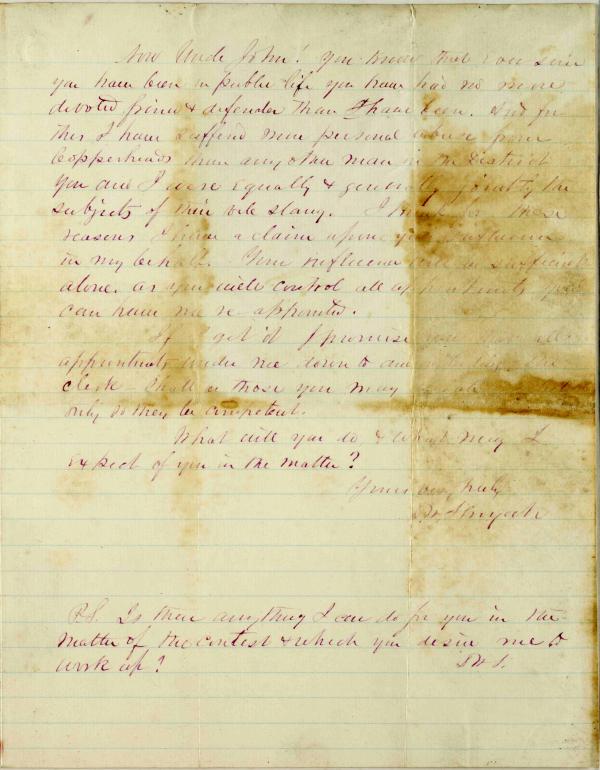 Now Uncle John! You know that ever since
you have been in public life you have had no more
devoted friend & defender than I have been. And for
this I have suffered more personal abuse from
Copperheads than any other man in the District
You and I were equally & generally jointly the
subjects of their vile slang. I think for these
reasons I have a claim upon your influence
in my behalf. Your influence will be sufficient
alone, as you will control all appointments you
can have me re appointed.
If I get it I promise you that all
appointments under me down to
clerk shall be those you may
only so they be competent.
What will you do & what may I
expect of you in the matter?
Yours very truly
P.S. Is there anything I can do for you in the
matter of the contest & which you desire me to
work up?